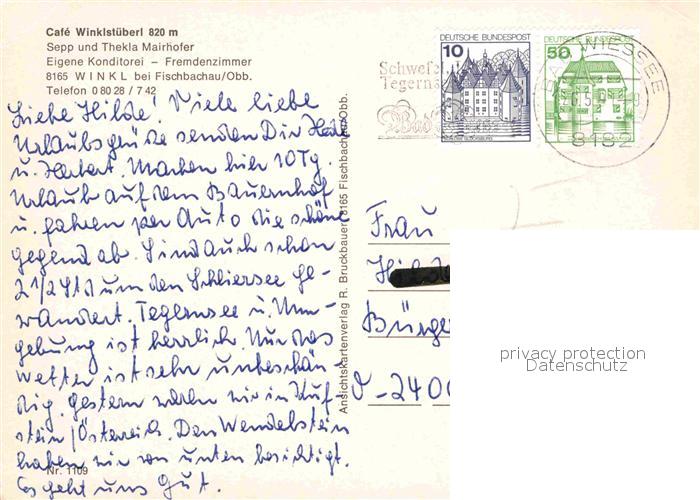 Café Winklstüberl 820 m
Sepp und Thekla Mairhofer
Eigene Konditorei – Fremdenzimmer
8165 WINKL bei Fischbachau/Obb.
Telefon 0 80 28 / 7 42
Liebe Hilde! Viele liebe
Urlaubsgrüße senden Dir
u. Herbert. Machen hier 10 Tg.
Urlaub auf dem Bauernhof
u. fahren per Auto die schöne
Gegend ab. Sind auch schon
2 1/2 Std um den Schliersee ge-
wandert. Tegernsee u. Um-
gebung ist herrlich. Nur das
Wetter ist sehr unbestän-
dig. Gestern waren wir in Kuf-
stein/Österreich. Den Wendelstein
haben wir von unten besichtigt.
Es geht uns gut.
Nr. 1109
Ansichtskartenverlag R. Bruckbauer, 8165 Fischbachau/Obb.
DEUTSCHE BUNDESPOST
10
DEUTSCHE BUNDESPOST
50
Schwefe
Tegerns
Bad
BAD WIESSEE
8182
Frau
Hil
Bürge
D-2400
privacy protection
Datenschutz